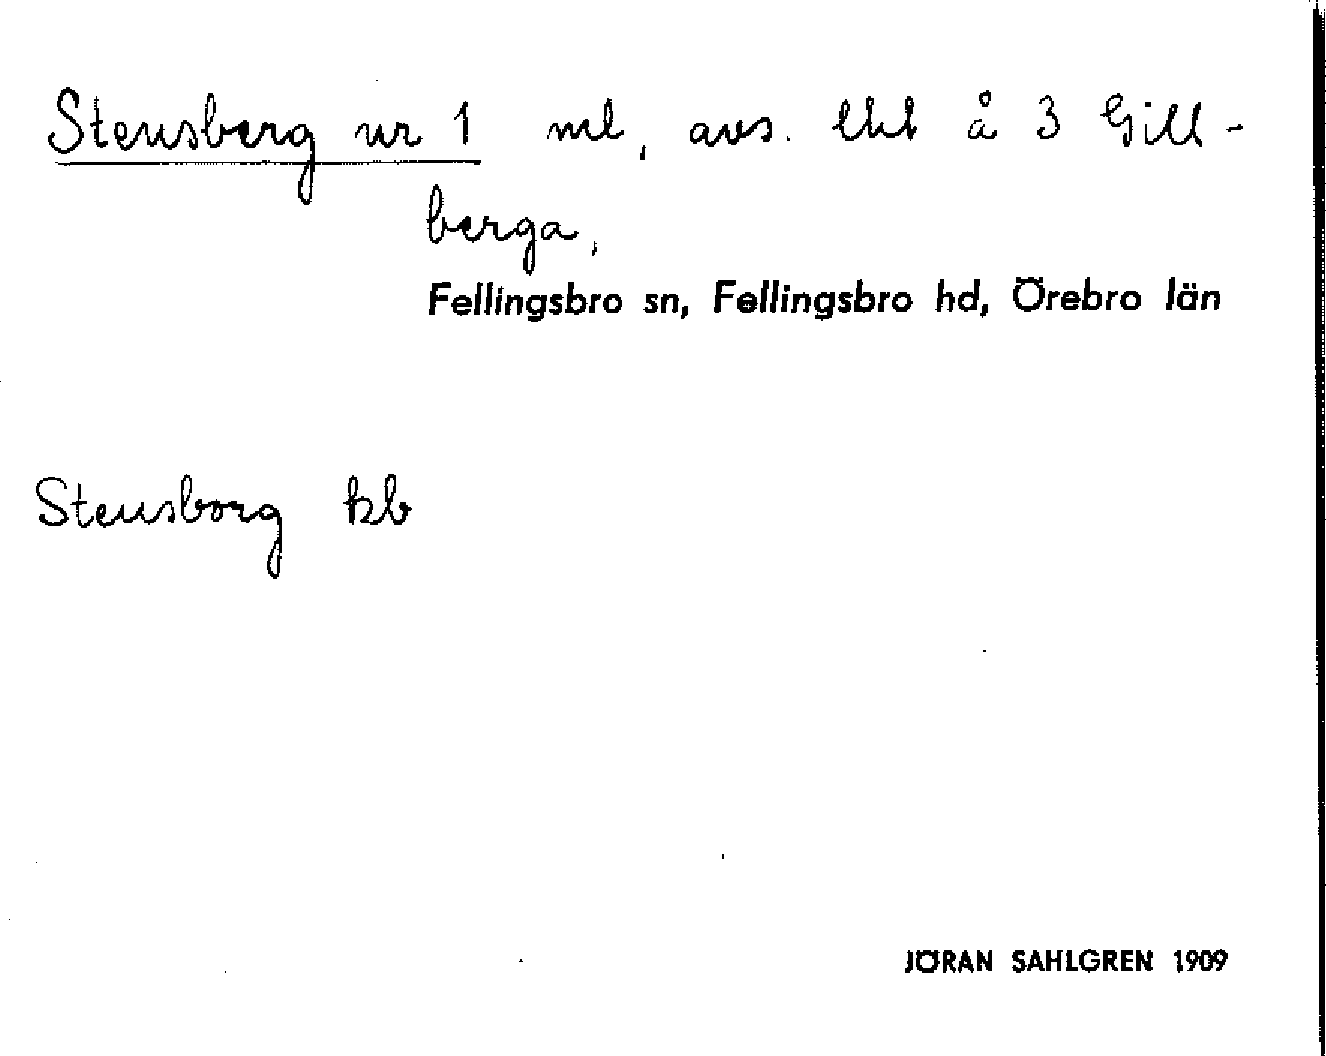 Stensberg nr 1 ml, avs. lht å 3 Gill-
berga,
Fellingsbro sn, Fellingsbro hd, Örebro län
Stensborg kb
JÖRAN SAHLGREN 1909